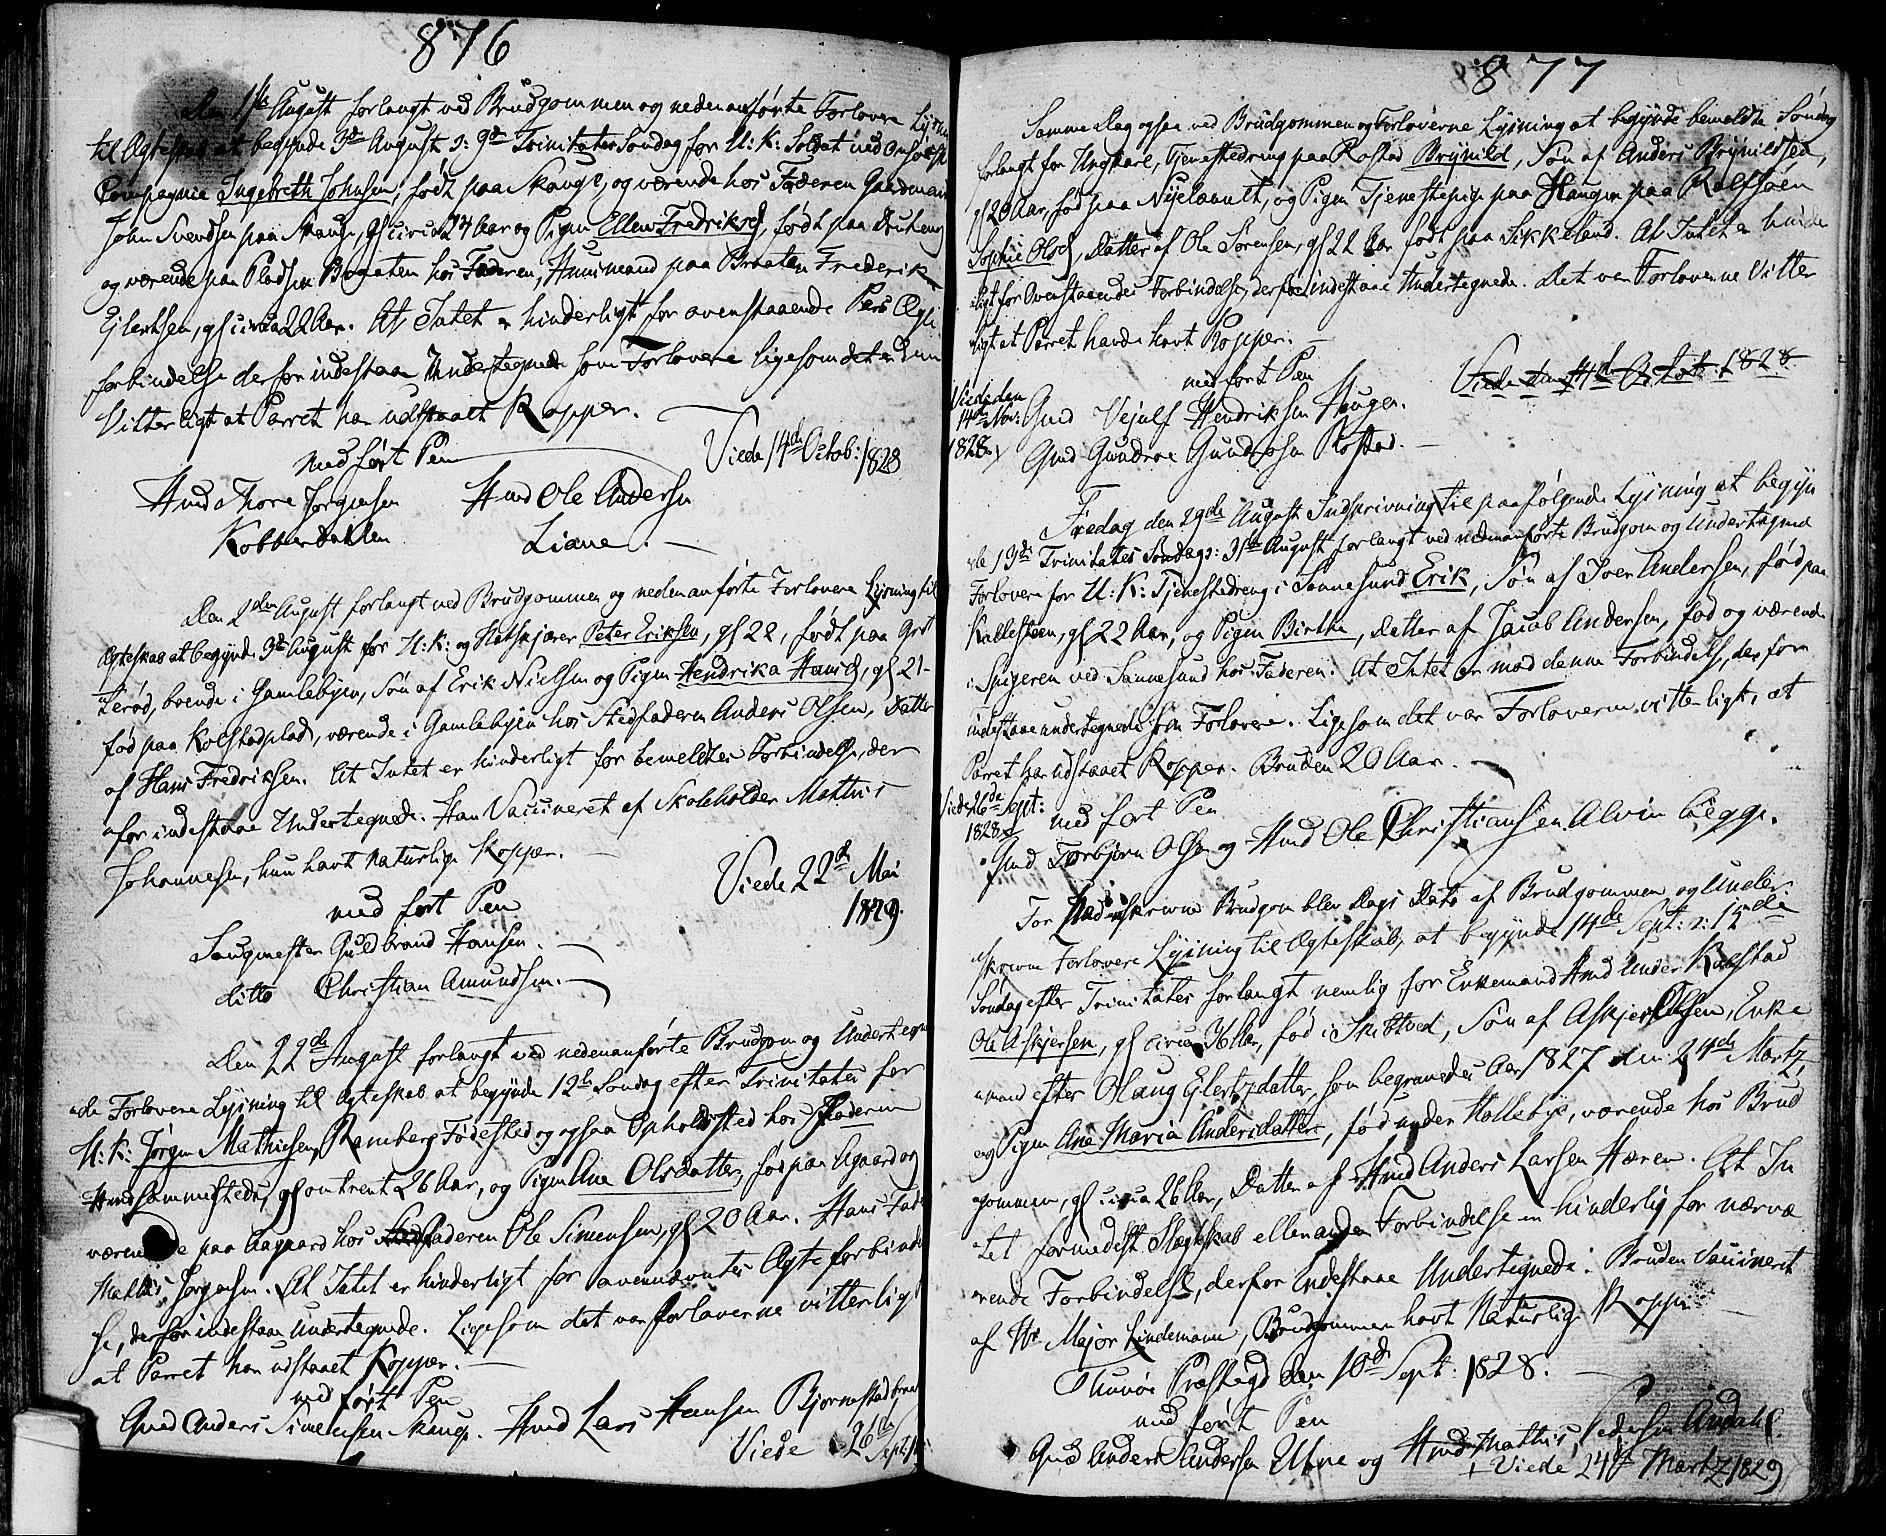 876
Den 1ste August forlangt ved Brudgommen og nedenanførte Forlovere Lysning
til Ægteskab at begynde 3de August ɔ: 9de Trinitatis Søndag for U: K: Soldat ved
Compagnie Ingebreth Johnsen, født paa Skauge, og værende hos Faderen Gaardmand
John Svendsen paa Skauge, gl circa 24 Aar og Pigen Ellen Fredriksd, født paa
og værende paa Pladsen Braaten hos Faderen, Huusmand paa Braaten Frederik
Ejlertsen, gl circa 22 Aar. At Intet er hinderligt for ovenstaaende Pars Ægte
forbindelse derfor indestaae Undertegnede som Forlovere ligesom det er dem
Vitterligt at Parret har udstaaet Kopper.
med ført Pen
Viede 14de Octob: 1828
Hmd Thore Jørgensen Hmd Ole Andersen
Kobberdahlen Liane.
Den 2den August forlangt ved Brudgommen og nedenanførte Forlovere Lysning til
Ægteskab at begynde 3de August for U: K: og Peter Eriksen, gl 22, født paa
boende i Gamlebyen, Søn af Erik Nielsen og Pigen Hendrika Hansd, gl 21
fød paa Kolstadplads, værende i Gamlebyen hos Stedfaderen Anders Olsen, Datter
af Hans Fredriksen. At Intet er hinderligt for bemeldte Forbindelse, der
for indestaae Undertegnede. Han Vaccineret af Skoleholder Mathis
Johannesen, hun havt naturlige Kopper.
med ført Pen
Viede 22de Mai
1829.
Saugmester Guldbrand Hansen.
ditto Christian Amundsen.
Den 22de August forlangt ved nedenanførte Brudgom og Undertegn
ede Forlovere Lysning til Ægteskab at begynde 12te Søndag efter Trinitatis for
U: K: Jørgen Mathiesen, Ramberg Fødested og ogsaa Opholdsted hos Faderen
Hmd sammesteds, gl omtrent 26 Aar, og Pigen Ane Olsdatter, fød paa Agaard og
værende paa Aagaard hos Faderen Ole Simensen, gl 20 Aar. Hans Fader
Mathis Jørgensen. At Intet er hinderligt for ovennævnte Ægteforbindel
se, derfor indestaae Undertegnede. Ligesom det var Forloverne vitterligt
at Parret har udstaaet Kopper.
med ført Pen
Gmd Anders Simensen Skauge. Hmd Lars Hansen Bjørnestadbraa
Viede 26de Sept
877
Samme Dag ogsaa ved Brudgommen og Forloverne Lysning at begynde bemeldte Søndag
forlangt for Ungkarl, Tjenestedreng paa Rostad Brynild, Søn af Anders Brynildsen,
gl 20 Aar, fød paa, og Pigen Tjenestepige paa Haugen paa Rolfsøen
Sophie Olsd, Datter af Ole Sørensen, gl 22 Aar født paa Sikkeland. At Intet er hinder
ligt for Ovenstaaendes Forbindelse, derfor indestaae Undertegnede. Det var Forloverne Vitter
ligt at Parret havde havt Kopper.
med ført Pen
Viede den 14de Octob: 1828
Viede den
14de Nov:
1828
Gmd Vejulf Hendriksen Haugen.
Gmd Gundroe Gundersen Rostad.
Fredag den 29de August Indskrivning til paafølgende Lysning at begyn
de 13de Trinitatis Søndag ɔ: 31te August forlangt ved nedenanførte Brudgom og Undertegnede
Forlovere for U: K: Tjenestedreng i Sannesund Erik, Søn af Iver Andersen, fød paa
Kallesteen, gl 22 Aar, og Pigen Birthe, Datter af Jacob Andersen, fød og værende
i Spigeren ved Sannesund hos Faderen. At Intet er mod denne Forbindelse, derfor
indestaae undertegnede som Forlovere. Ligesom det var Forloverne vitterligt, at
Parret har udstaaet Kopper. Bruden 20 Aar.
Viede 26de Sept:
1828
med ført Pen
Gmd Torbjørn Olsen og Hmd Ole Christiansen Alvim begge.
For Brudgom blev Dags Dato af Brudgommen og Under
skrevne Forlovere Lysning til Ægteskab, at begynde 14de Sept: ɔ: 15de
Søndag efter Trinitatis forlangt nemlig for Enkemand Hmd under Kolstad
Ole Askjersen, gl circa 36 Aar, fød i Skibtved, Søn af Askjer Olsen, Enke
mand efter Olaug Ejlertzdatter, som begravedes Aar 1827 den 24de Martz,
og Pigen Ane Maria Andersdatter, fød under Hollebye, værende hos Brud
gommen, gl circa 26 Aar, Datter af Hmd Anders Larsen Hæren. At In
tet formedelst Slægtskab eller anden Forbindelse er hinderlig for nærvæ
rende Forbindelse, derfor Indestaae Undertegnede. Bruden Vaccineret
af Hr Major Lindemann, Brudgommen havt Naturlige Kopper
Thunøe Præstegd den 10de Sept: 1828.
med ført Pen
Gmd Anders Andersen Utne og Hmd Mathis Pedersen Andahl.
Viede 24de Martz 1829